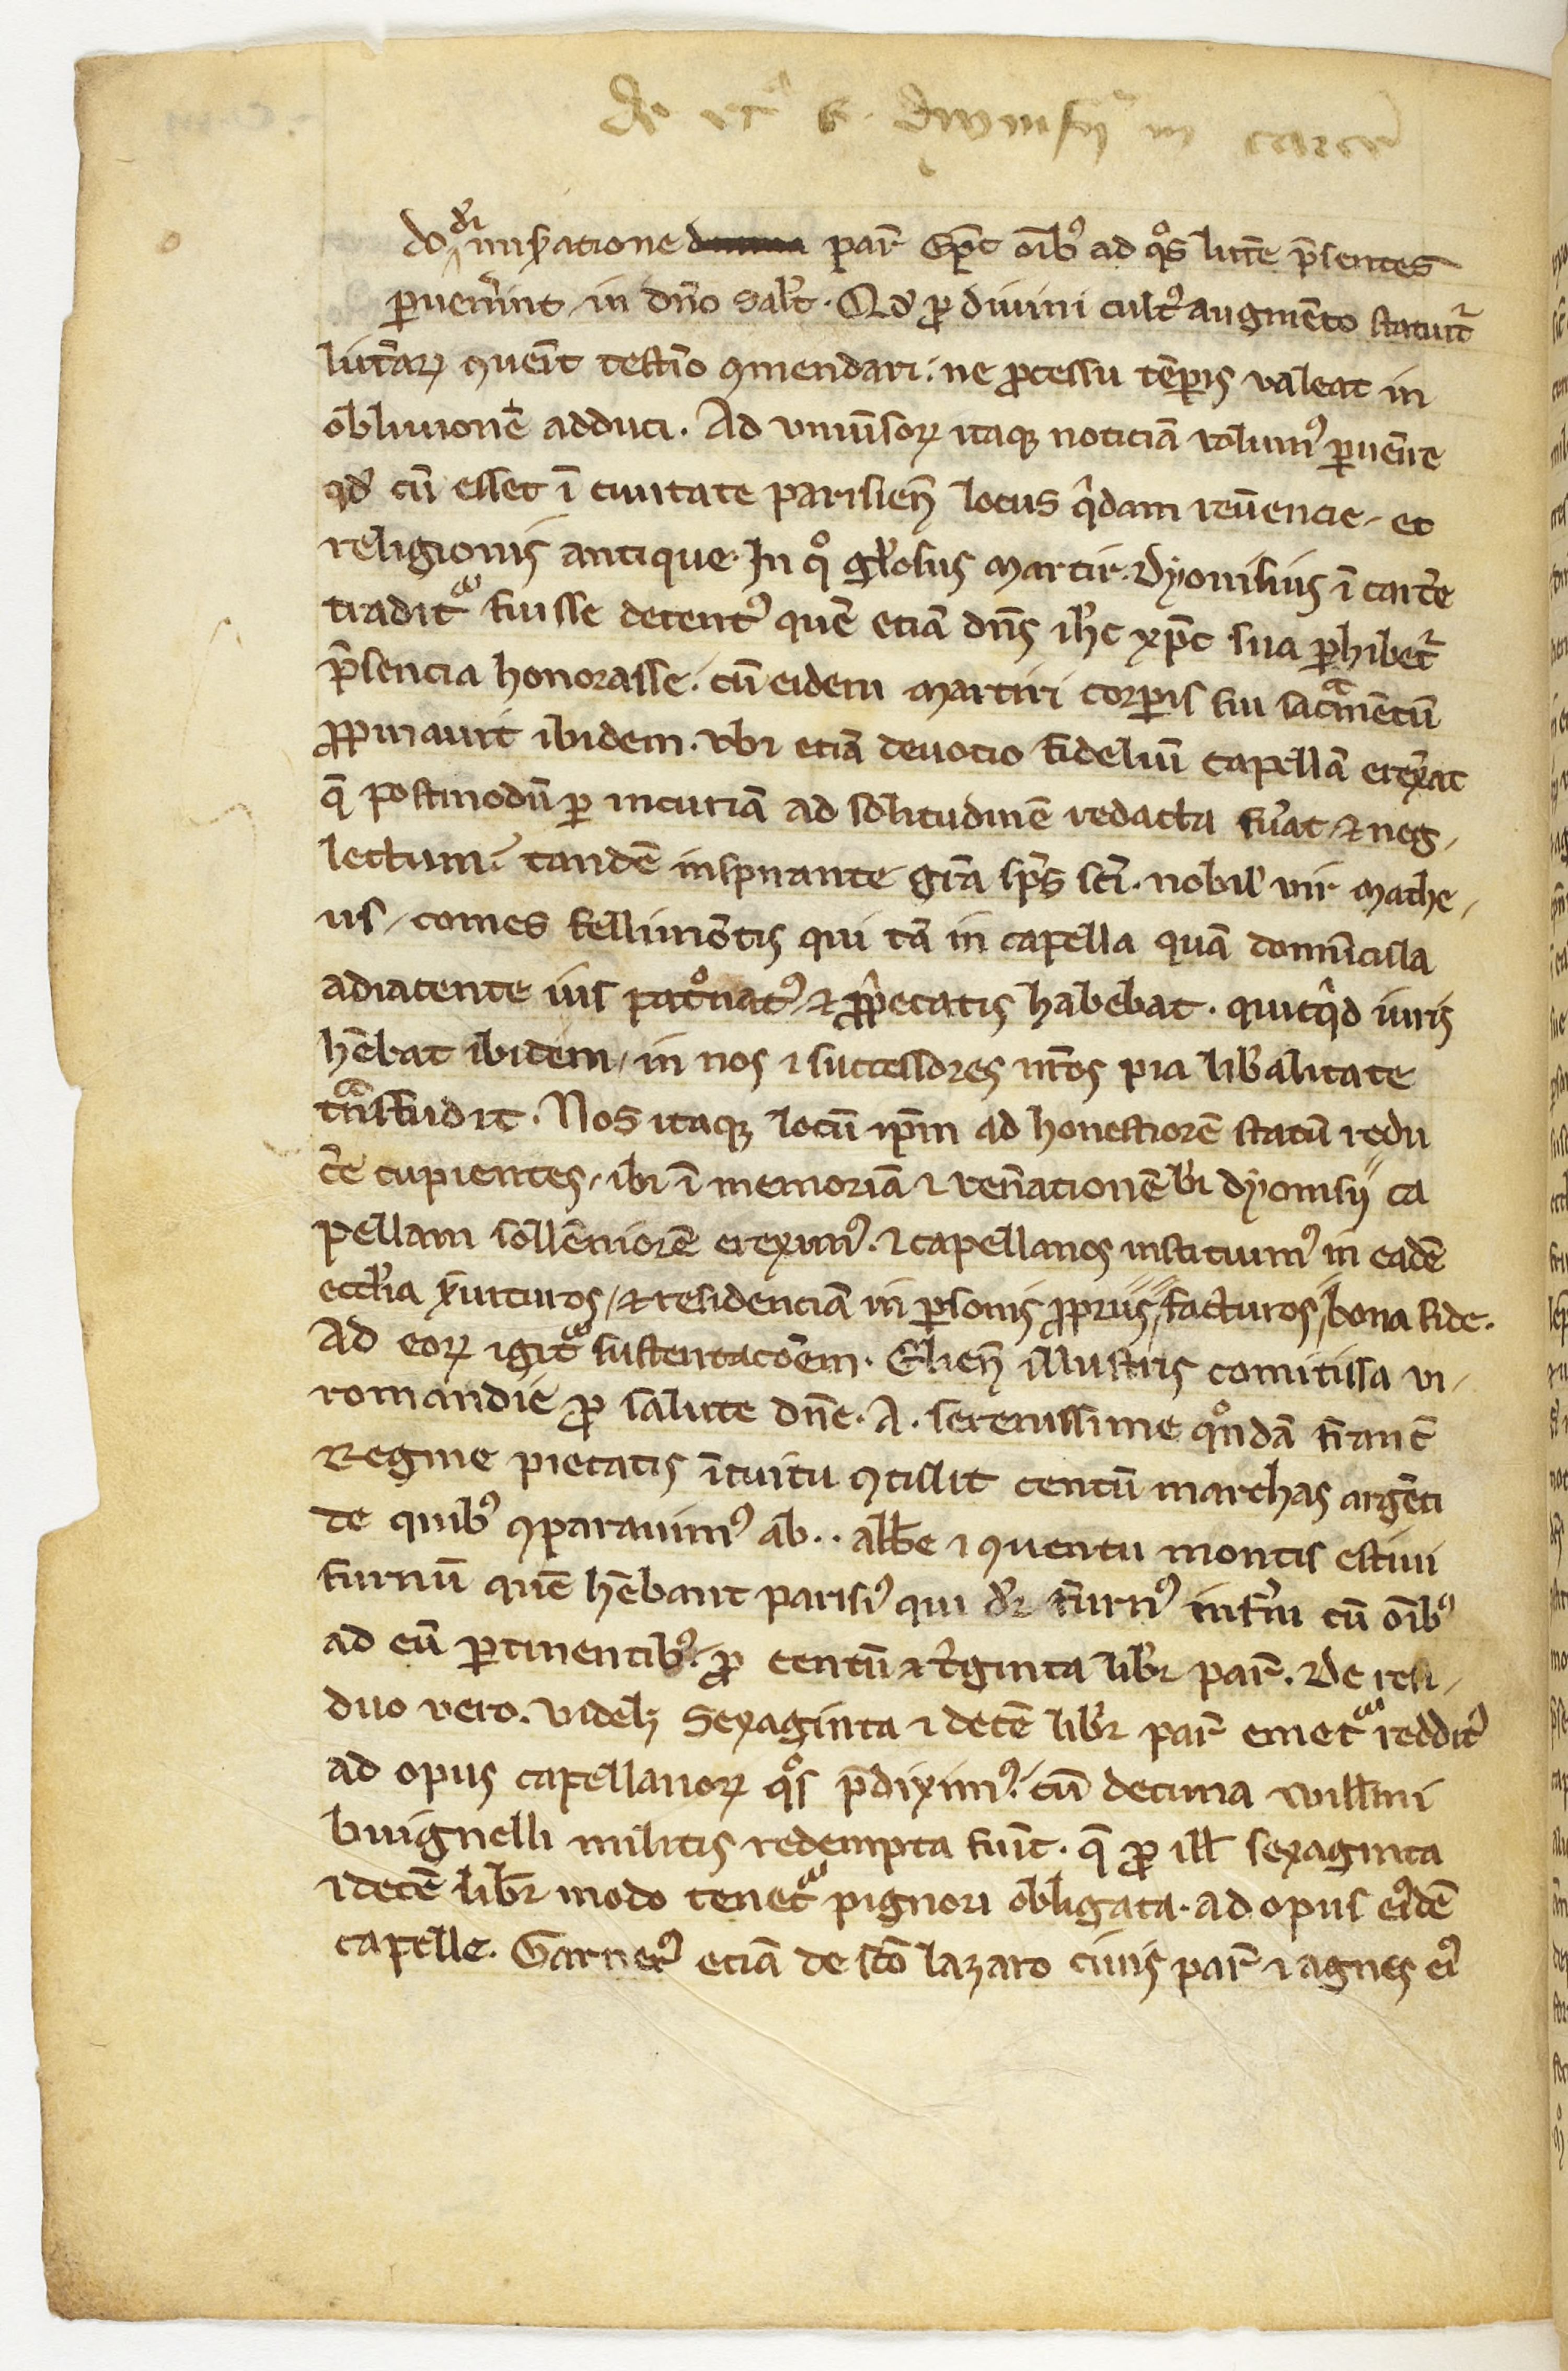 de sct̃o dyonisij in carce
do di mis̃atione par̃ ep̃c oib᷒ ad qͦs litt̃e p̃sentes
ꝑuen̾int in dño sal̾t. Qd̾ ꝓ diuini cult᷒ augm̃to statuit᷑
litt̃arꝝ ꝯuẽit testĩo ꝯmendari. ne ꝓcessu tẽꝑis valeat in
obliuionẽ adduci. Ad vniũsorꝝ itaqꝫ noticiã volum᷒ ꝑuẽire
qd̾ cũ esset ĩ ciuitate parisieñ locus qͥdam reũencie et
religionis antique. In qͦ gl̾osus martir. dyonisius ĩ carc̾e
tradit᷑ fuisse detent᷒ quẽ etiã dñs ih̾c xp̃c sua ꝑhibet᷑
p̃sencia honorasse. cũ eidem martiri corꝑis sui sacᷓmẽtũ
ꝓpinauit ibidem. vbi etiã deuotio fidelium capellã erex̾at
q̃ postmodũ ꝑ incuriã ad solitudinẽ redacta fũat ⁊ neg
lectum. tandẽ inspirante gr̃a sp̃s sc̃i. nobil̾ vir mathe
us comes bellimõtis qui tã in capella quã domũcula
adiacente ius patͦnat᷒ ⁊ ꝓpͥetatis habebat. quicqͥd iuris
hẽbat ibidem in nos ⁊ successores nr̃os pia lib̾alitate
tᷓnsfudit. Nos itaqꝫ locũ ip̃m ad honestiorẽ statũ redu
c̾e cupientes. ibi ĩ memoriã ⁊ ven̾ationẽ bi dyonisij ca
pellam sollẽniorẽ erexim᷒. ⁊ capellanos instituim᷒ in eadẽ
eccl̾ia s̾uituros ⁊ residenciã in ꝑsonis ꝓpriis facturos bona fide.
Ad eorꝝ igit᷑ sustentacõem. Elieñ illustris comitissa vi
romandie ꝓ salute dñe. A. serenissime qͦndã franc̃
Regine pietatis ĩtuitu ꝯtulit centũ marchas argẽti
de quib᷒ ꝯparauim᷒ ab.. abb̃e ⁊ ꝯuentu montis estiui
furnũ quẽ hẽbant parisi᷒ qui dr̾ furn᷒ inf̾ni cũ oĩb᷒
ad eũ ꝑtinentib᷒. ꝓ centũ ⁊ tͥginta libr̾ par̃. De resi
duo vero. videlꝫ sexaginta ⁊ decẽ libr̾ par̃ emet᷑ reddit᷒
ad opus capellanorꝝ qͦs p̃dixim᷒. cũ decima will̾mi
buignelli militis redempta fuit. q̃ ꝓ ill̾ sexaginta
⁊ decẽ libr̾ modo tenet᷑ pignori obligata. ad opus ei᷒dẽ
capelle. Garner᷒ etiã de sc̃o lazaro ciuis par̃ ⁊ agnes ei᷒